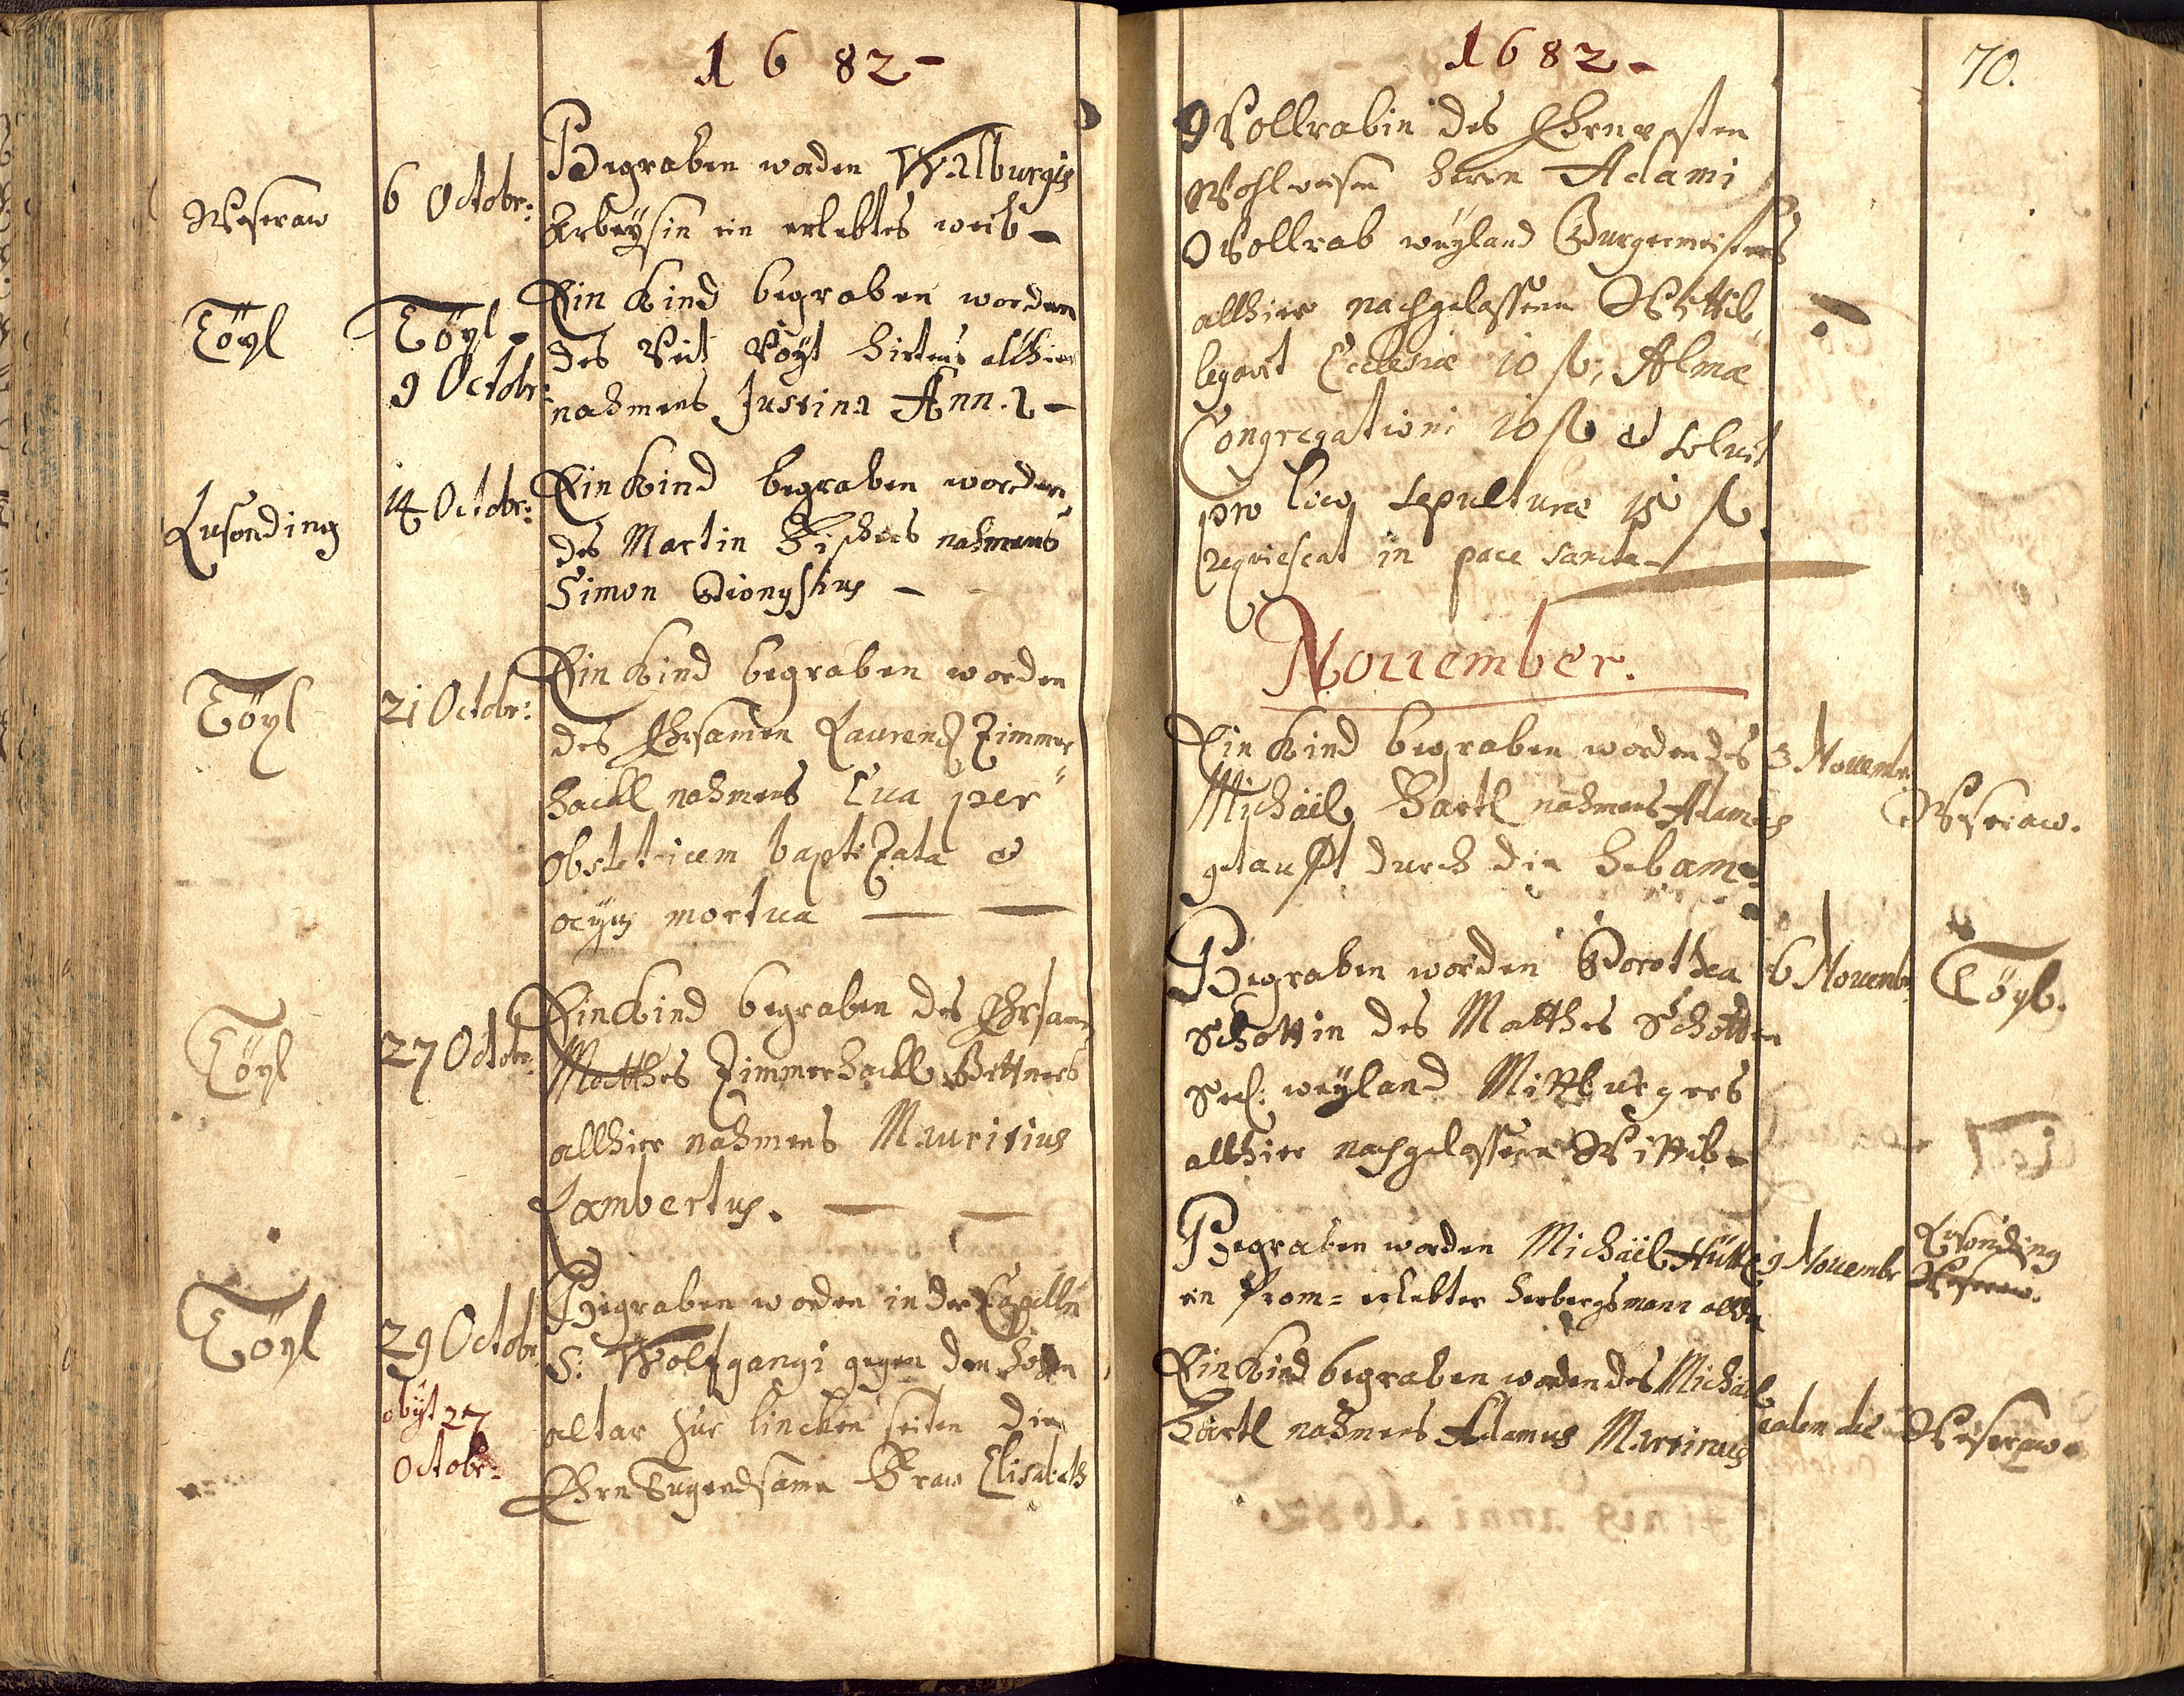 1682-
Weseraw
6 Octobr:
Begraben worden Walburgis
Arbeysin ein erlebtes weib -
Töyl
Töyl
9 Octobr:
Ein Kind begraben worden
des Veit Voyt hirtens allhier
nahmens Justina Anna -
Lusonding
14 Octobr:
Ein Kind begraben worden,
des Martin Fischers nahmens
Simon Dionysius -
Töyl
21 Octobr:
Ein Kind begraben worden
des Ehrsamen Laurenz Zimmer
hackl nahmens Eua per
obstetricem baptizata et
ocyus mortua
Töyl
27 Octobr:
Ein Kind begraben des Ehrsam
Matthes Zimmerhackl Bittners
allhier nahmens Mauritius
Lambertus.
Töyl
29 Octobr:
obijt 27
Octobr:
Begraben worden in der Capelln
S: Wolfgangi gegen den hohen
altar zur lincken seiten die
Ehrn Tugendsame Fraw Elisabeth
1682-
70.
Vollrabin des Ehrnvesten
Wohlweisen herrn Adami
Vollrab weyland Burgermeisters
allhier nachgelassene Wittib,
legavit Ecclesiæ 10 fl, Almæ
Congregationi 10 fl et soluit
pro loco sepulturæ 15 fl.
requiescat in pace sancta-
Nouember.
Ein Kind begraben worden des
Michäel Hartl nahmens Adamus
getaufft durch die hebam.
3 Nouembr:
Weseraw.
Begraben worden Dorothea
Schottin des Matthes Schotten
Seel: weyland Mittburgers
allhier nachgelassene Wittib-
6 Nouembr:
Töyl.
Begraben worden Michäel Hüttl
ein from= erlebter herbergsmann allda
9 Nouembr
Lusonding
Weseraw.
Ein Kind begraben worden des Michäel
Hartl nahmens Adamus Martinus
eadem die
Weseraw